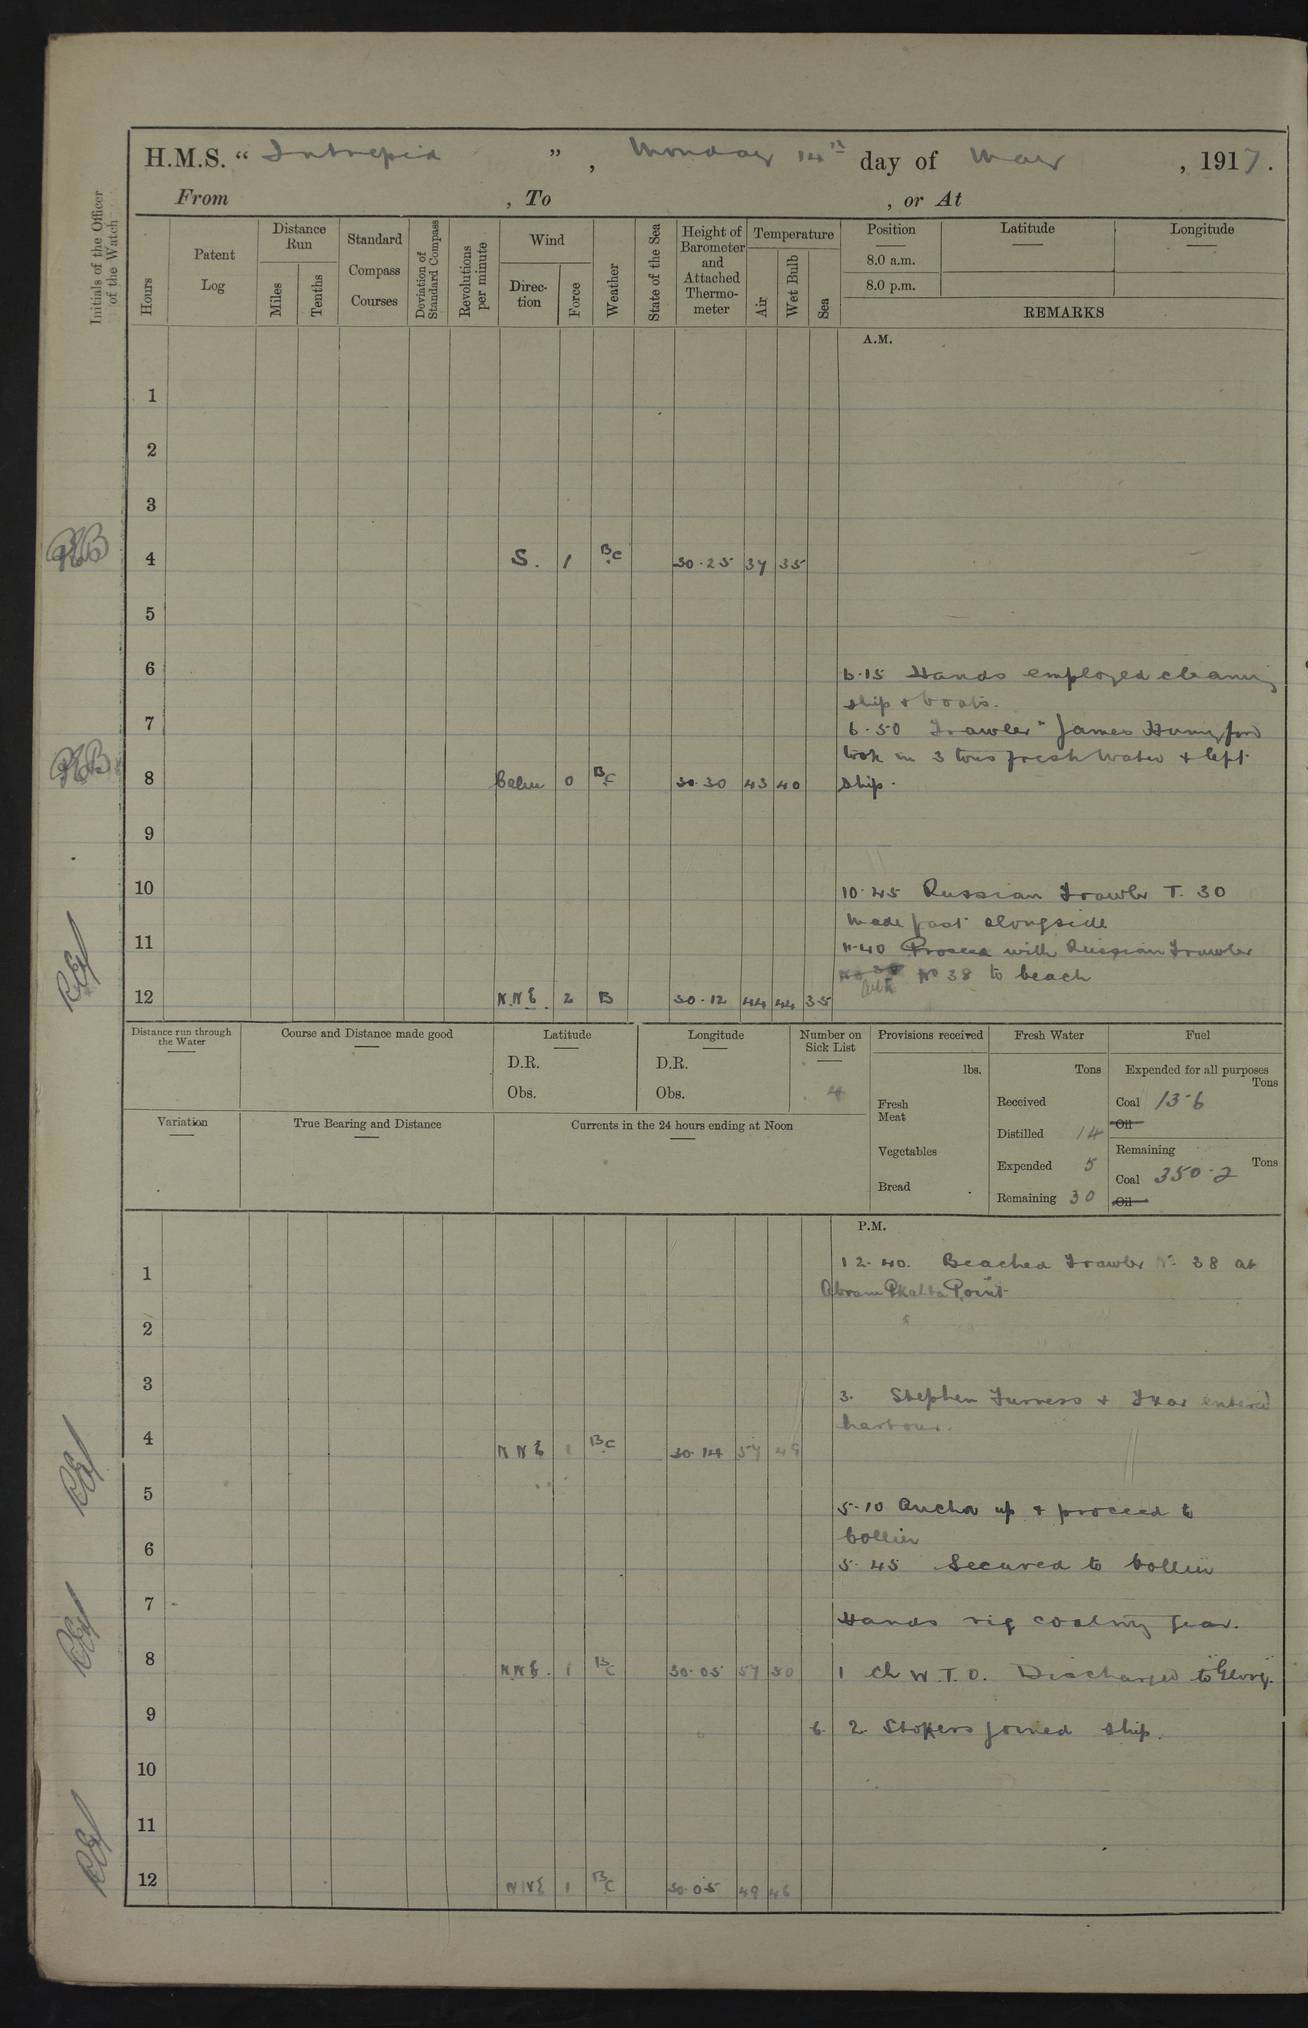 H.M.S. “ Intrepid ” , Monday 14th day of May , 1917.
From , To , or At
Initials of the Officer of the Watch
Hours
Patent Log
Distance Run
Miles
Tenths
Standard Compass Courses
Deviation of Standard Compass
Revolutions per minute
Wind
Direction
Force
Weather
State of the Sea
Height of Barometer and Attached Thermometer
Temperature
Air
Wet Bulb
Sea
Position
8.0 a.m.
8.0 p.m.
Latitude
Longitude
REMARKS
A.M.
1
2
3
4 S. 1 BC 30.25 37 35
5
6
6.15 Hands employed cleaning
ship & boats.
7
6.50 Trawler "James Hunniford
took in 3 tons fresh water & left
8 Calm 0 BC 30.30 43 40 ship.
9
10
10.45 Russian Trawler T. 30
made fast alongside
11
11.40 Proceed with Russian Trawler
No 38 to beach
12 N.N.E. 2 B 30.12 44 44 35
Distance run through the Water
Course and Distance made good
Latitude
D.R.
Obs.
Longitude
D.R.
Obs.
Number on Sick List
4
Provisions received
lbs.
Fresh Meat
Vegetables
Bread
Fresh Water
Tons
Received
Distilled 14
Expended 5
Remaining 30
Fuel
Expended for all purposes
Tons
Coal 13.6
Oil
Remaining
Tons
Coal 350.2
Oil
Variation
True Bearing and Distance
Currents in the 24 hours ending at Noon
P.M.
12.40. Beached Trawler No 38 at
1
Abram Point
2
3
3. Stephen Furness & entered
harbour.
4 NNE 1 BC 30.14 57 49
5
5.10 Anchor up & proceed to
Collier
6
5.45 Secured to Collier
7
Hands rig coaling gear.
8 N.N.E. 1 BC 30.05 57 50
1 Ch W.T.O. Discharged to "Glory".
9
6. 2 Stokers joined ship.
10
11
12 NNE 1 BC 30.05 49 46